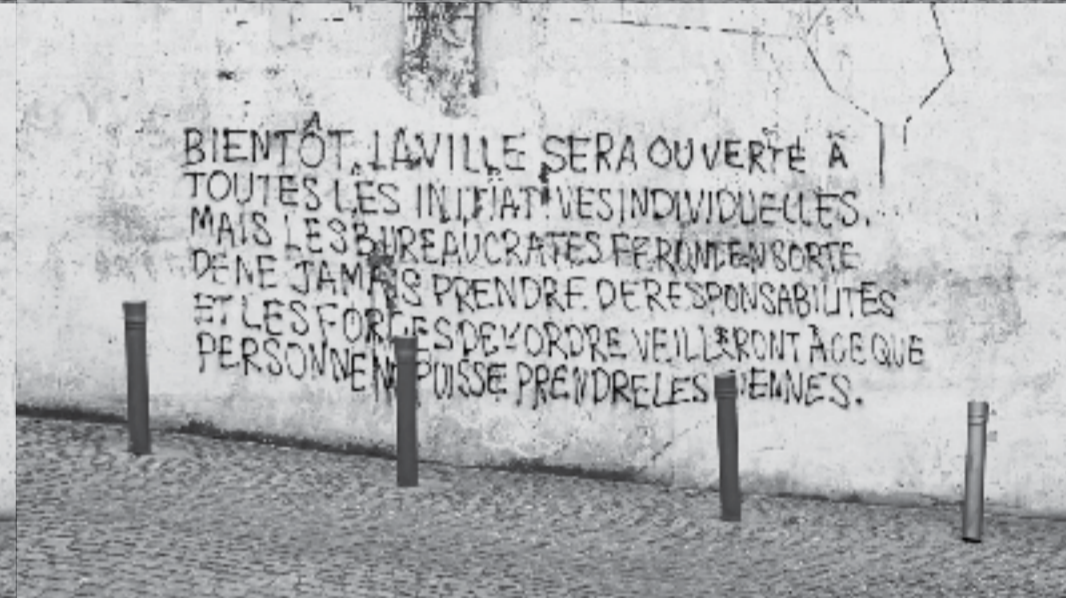 BIENTÔT, LA VILLE SERA OUVERTE À
TOUTES LES INITIATIVES INDIVIDUELLES.
MAIS LES BUREAUCRATES FERONT EN SORTE
DE NE JAMAIS PRENDRE DE RESPONSABILITÉS
ET LES FORCES DE L'ORDRE VEILLERONT À CE QUE
PERSONNE N PUISSE PRENDRE LES IENNES.